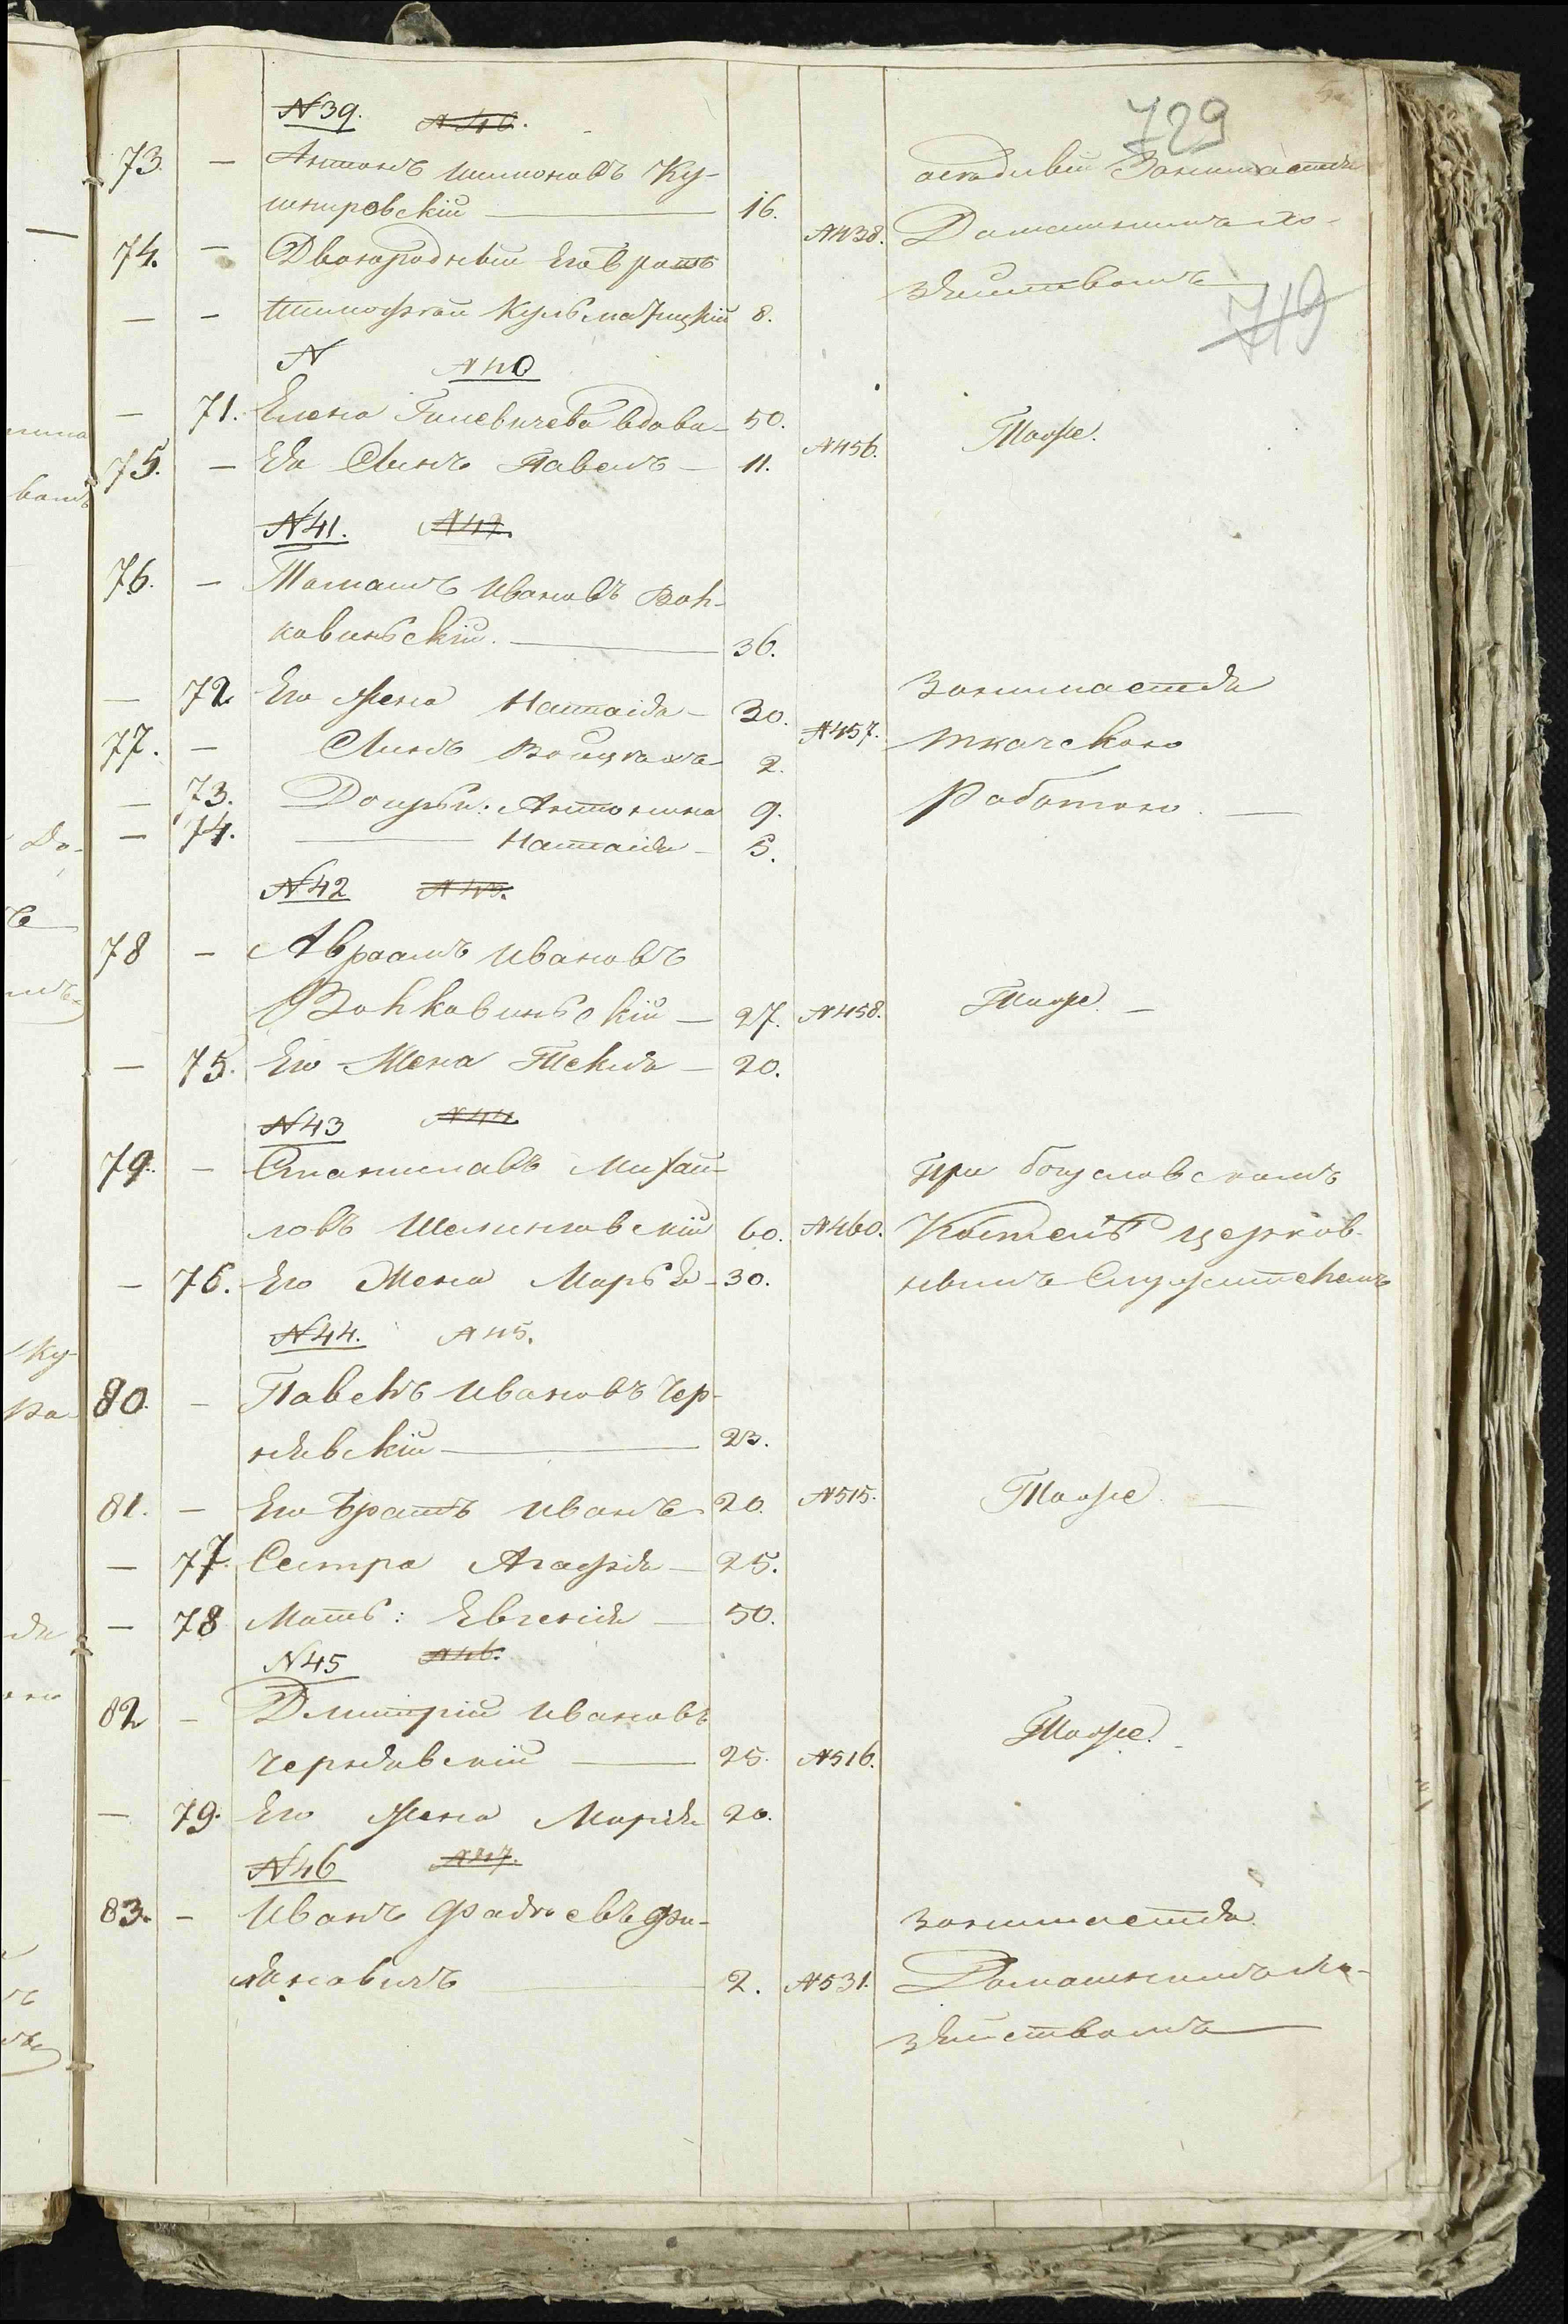 729
719
N39. N40.
73. — Антонъ Шимоновъ Ку-
шнировскій — 16. N438. оседлый Занимается
Домашнимъ хо-
зяйствомъ
74. — Двоюродный Его Братъ
— — Тимофей Кульматицкій 8.
N N40
— 71. Елена Гилевичева вдова — 50. N456. Тоже.
75. — Ея Сынъ Павелъ — 11.
N41. N42.
76. — Томашъ Ивановъ Вой-
ковинскій. — 36.
— 72 Его Жена Наталія — 30. N457. Занимается
77. — Сынъ Войцехъ 2. ткаческою
— 73. Дочери: Антонина 9. Работою. —
— 74. — Наталія — 5.
N42 N43.
78 — Авраамъ Ивановъ
Войковинскій — 27. N458. Тоже. —
— 75. Его Жена Текля — 20.
N43 N44
79. — Станиславъ Михай-
ловъ Шелинговскій 60. N460. При богуславскомъ
Костелѣ церков-
нымъ Служителемъ
— 76. Его Жена Марья — 30.
N44. N45.
80. — Павелъ Ивановъ Чер-
нявскій — 23.
81. — Его Братъ Иванъ 20. N515. Тоже. —
— 77. Сестра Агафія — 25.
— 78 Мать: Евгенія — 50.
N45 N46.
82 — Дмитрій Ивановъ
Чернявскій — 25. N516. Тоже. —
— 79. Его Жена Марія 20.
N46 N47.
83. — Иванъ Фадѣевъ
— 2. N531. Занимается
Домашнимъ хо-
зяйствомъ —